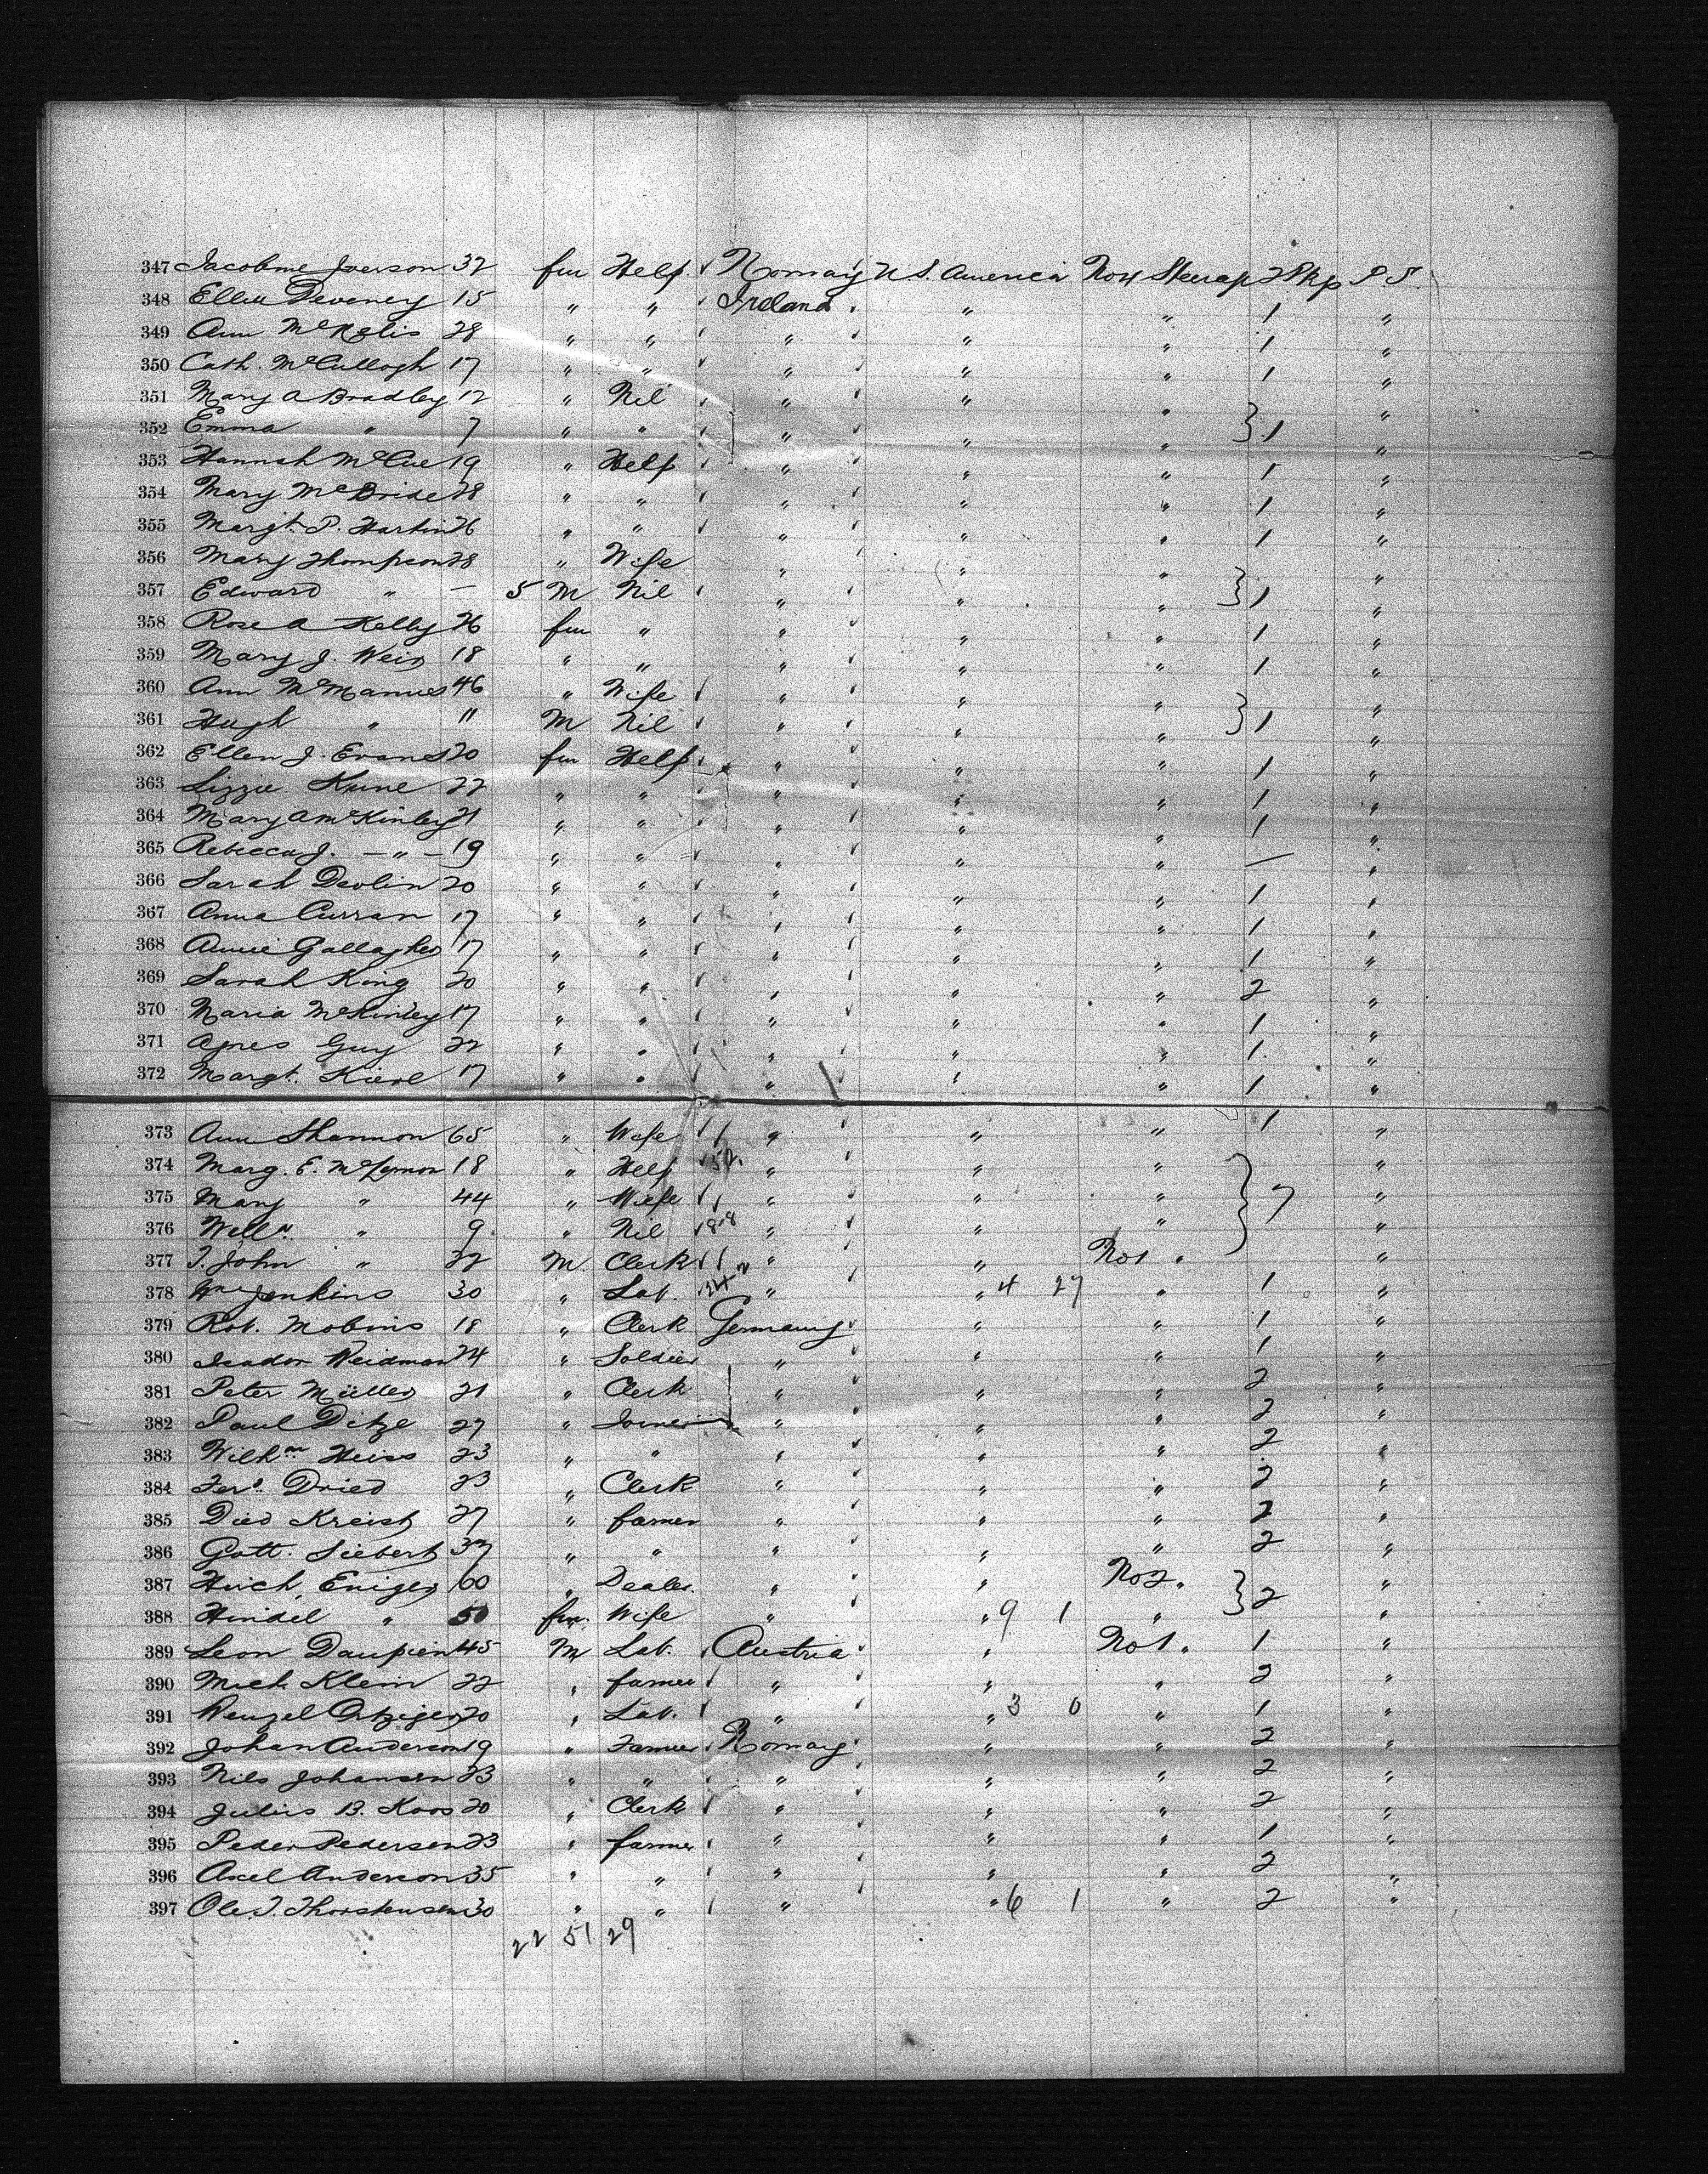 347 Jacobine Iverson 32 fm Help Norway U.S. America No 4 Steerage 2 Pkg P.S.
348 Ellen Deveney 15 " " Ireland " " 1 "
349 Ann McNelis 28 " " " " " 1 "
350 Cath. McCullogh 17 " " " " " 1 "
351 Mary A Bradley 12 " Nil " " " "
352 Emma " 7 " " " " " } 1 "
353 Hannah McCue 19 " Help " " " 1 "
354 Mary McBride 28 " " " " " 1 "
355 Margt. P. Hartin 26 " " " " " 1 "
356 Mary Thompson 28 " Wife " " " "
357 Edward " — 5 M Nil " " " } 1 "
358 Rose A Kelly 26 fm " " " " 1 "
359 Mary J. Weir 18 " " " " " 1 "
360 Ann McManus 46 " Wife " " " "
361 Hugh " 11 M Nil " " " } 1 "
362 Ellen J. Evans 20 fm Help " " " 1 "
363 Lizzie Kune 22 " " " " " 1 "
364 Mary A McKinley 21 " " " " " 1 "
365 Rebecca J. — " — 19 " " " " " — "
366 Sarah Devlin 20 " " " " " 1 "
367 Anna Curran 17 " " " " " 1 "
368 Annie Gallagher 17 " " " " " 1 "
369 Sarah King 20 " " " " " 2 "
370 Maria McKinley 17 " " " " " 1 "
371 Agnes Guy 22 " " " " " 1 "
372 Margt. Kierl 17 " " " " " 1 "
373 Ann Shannon 65 " Wife " " " 1 "
374 Marg. E. 18 " Help " " " "
375 Mary " 44 " Wife " " " } 7 "
376 Welln. " 9 " Nil " " " "
377 T. John " 22 M Clerk " " No 1 "
378 Wm Jenkins 30 " Lab. " " 4 27 " 1 "
379 Rob. Mobins 18 " Clerk Germany " " 1 "
380 Isador Weidman 24 " Soldier " " " 1 "
381 Peter Müller 21 " Clerk " " " 2 "
382 Paul Ditze 27 " Joiner " " " 2 "
383 Wilhm Heiss 23 " " " " " 2 "
384 Ferd. Dried 23 " Clerk " " " 2 "
385 Died Kreist 27 " farmer " " " 2 "
386 Gott. Siebert 37 " " " " " 2 "
387 Hirch Eniger 60 " Dealer " " No 2 "
388 Hindel " 50 fm Wife " " 9 1 " } 2 "
389 Leon Daupien 45 M Lab. Austria " No 1 1 "
390 Mich. Klein 22 " farmer " " " 2 "
391 Wenzel 20 " Lab. " " 3 0 " 1 "
392 Johan Anderson 19 " Farmer Norway " " 2 "
393 Nils Johansen 23 " " " " " 2 "
394 Julius B. Koos 20 " Clerk " " " 2 "
395 Peder Pedersen 23 " farmer " " " 1 "
396 Axel Anderson 35 " " " " " 2 "
397 Ole T. Thorstensen 30 " " " " 6 1 " 2 "
22 51 29